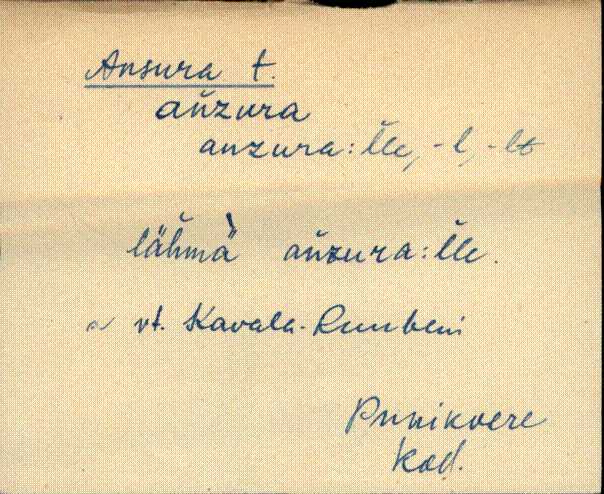 Ansura t.
ańzura
anzura: l̆le, -l, -lt
lähmä ańzura: l̆le.
vt. Kavala-Ruubeni
Punikvere
Kod.